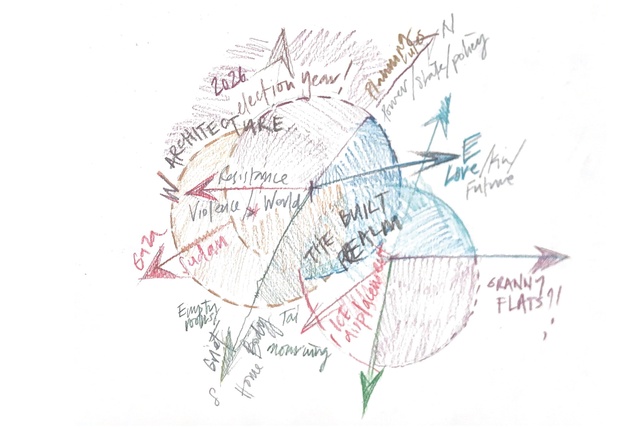 2026
election year!
Planning
rules
N
power/state/policy
ARCHITECTURE
W
E
Love/Kin/
Future
Resistance
Violence/World
THE BUILT
REALM
Gaza
Sudan
ICE
displacement
GRANNY
FLATS?!
Empty
rooms!
Grief
Body
Home
Tai
mourning
S